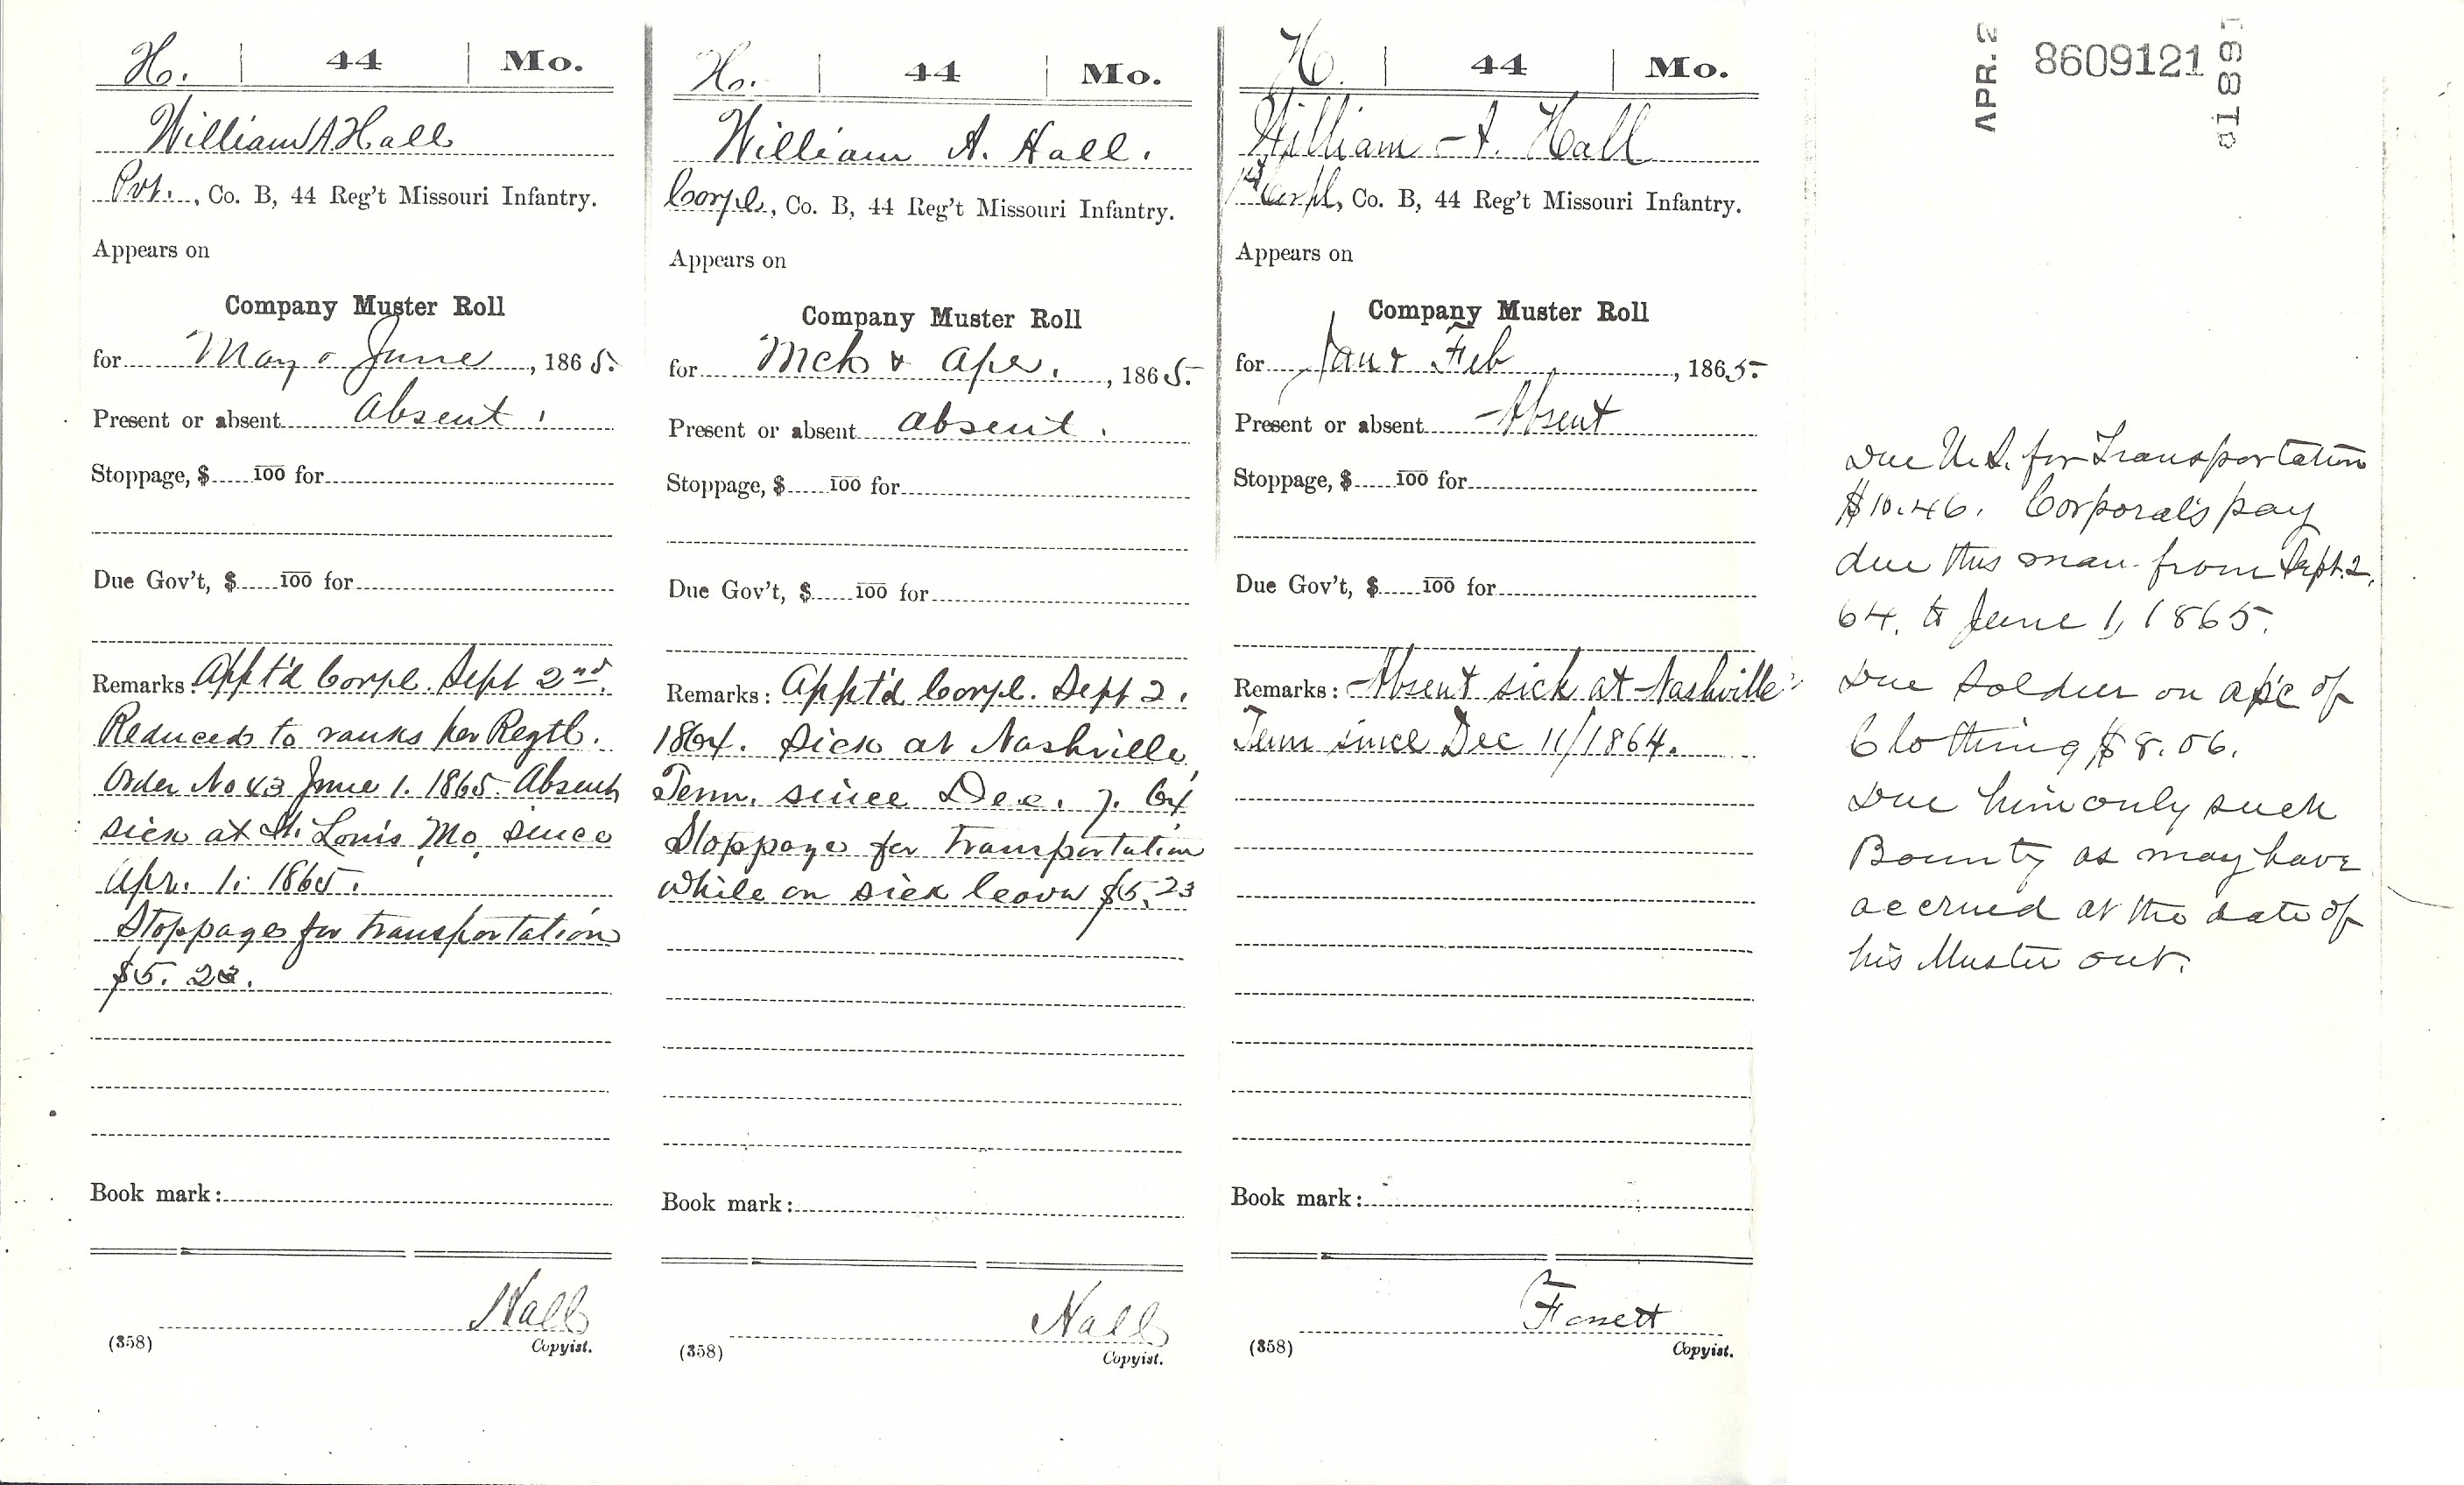 H. | 44 | Mo.
William A Hall
Pvt., Co. B, 44 Reg't Missouri Infantry.
Appears on
Company Muster Roll
for May & June, 1865.
Present or absent absent.
Stoppage, $ 100 for
Due Gov't, $ 100 for
Remarks: Appt'd Corpl. Sept 2nd.
Reduced to ranks per Regtl.
Order No 43 June 1. 1865. Absent
sick at St. Louis Mo. since
Apr. 1. 1865.
Stoppages for transportation
$5.23.
Book mark:
Nall
(358) Copyist.
H. | 44 | Mo.
William A. Hall.
Corpl., Co. B, 44 Reg't Missouri Infantry.
Appears on
Company Muster Roll
for Mch & Apr., 1865.
Present or absent absent.
Stoppage, $ 100 for
Due Gov't, $ 100 for
Remarks: Appt'd Corpl. Sept 2.
1864. Sick at Nashville,
Tenn. since Dec. 7. 64
Stoppage for transportation
while on sick leave $5.23
Book mark:
Nall
(358) Copyist.
H. | 44 | Mo.
William A. Hall
Corpl, Co. B, 44 Reg't Missouri Infantry.
Appears on
Company Muster Roll
for Jan & Feb, 1865.
Present or absent Absent
Stoppage, $ 100 for
Due Gov't, $ 100 for
Remarks: Absent sick at Nashville
Tenn since Dec 11/1864.
Book mark:
(358) Copyist.
APR. 2
8609121
1881
Due U.S. for Transportation
$10.46. Corporal's pay
due this man from Sept. 2,
64. to June 1, 1865.
Due Soldier on a/c of
Clothing $8.06.
Due him only such
Bounty as may have
accrued at the date of
his Muster out.